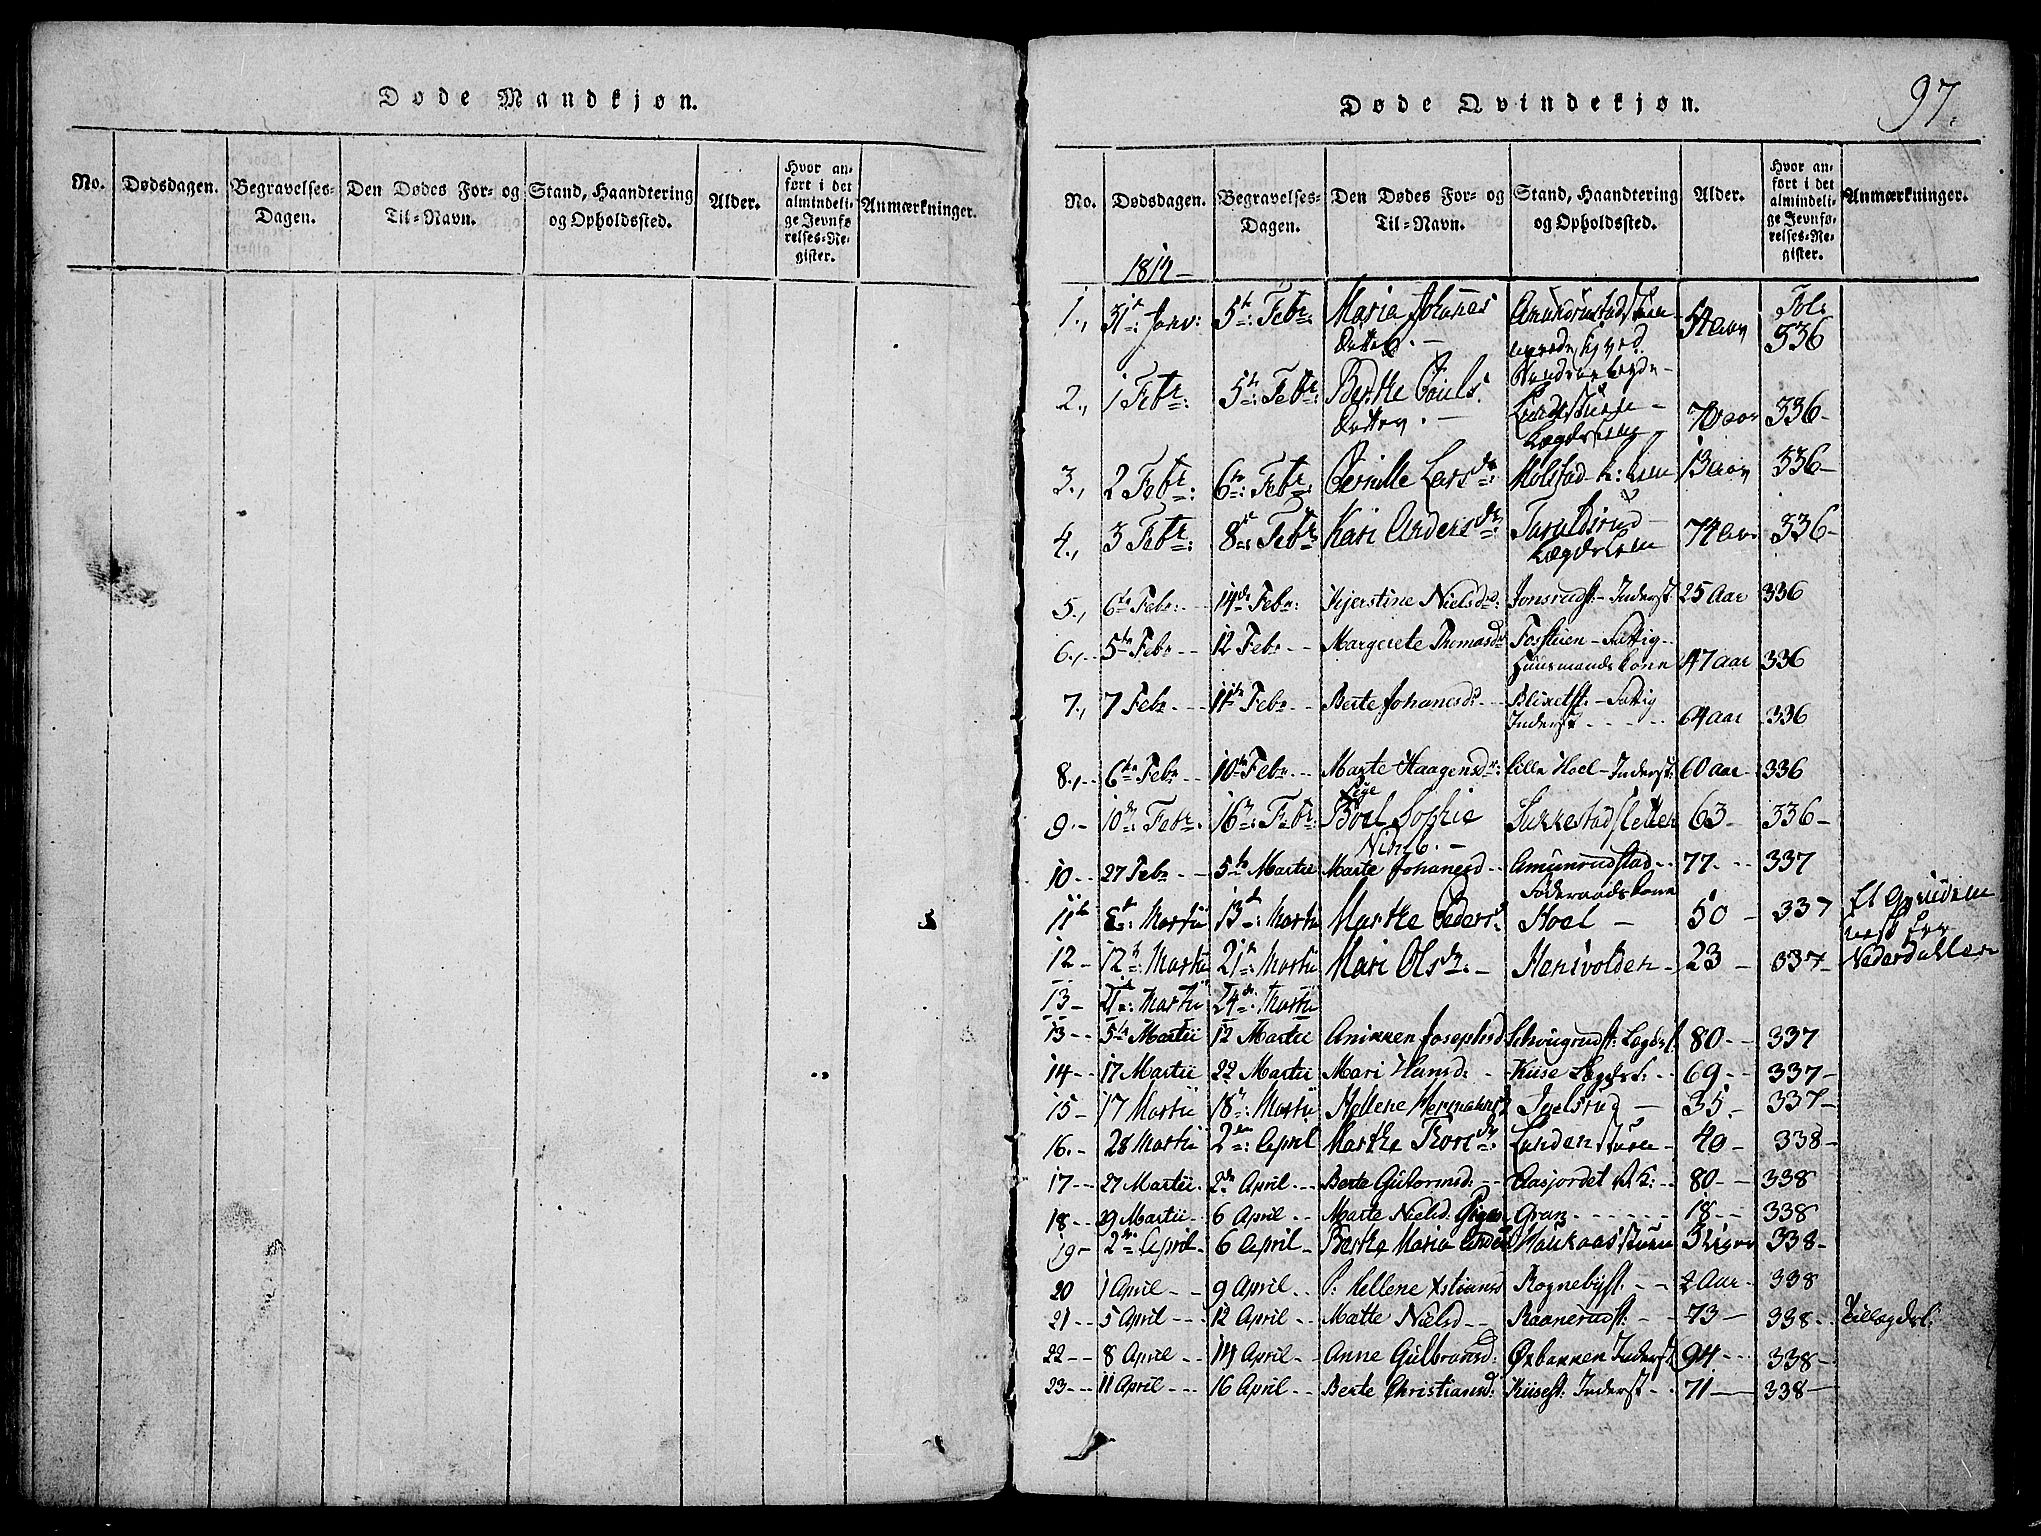 Døde Mandkjøn.
No. Dødsdagen. Begravelses-Dagen. Den Dødes For- og Til-Navn. Stand, Haandtering og Opholdssted. Alder. Hvor anført i det almindelige Jevnførelses-Register. Anmærkninger.
97.
Døde Qvindekjøn.
No. Dødsdagen. Begravelses-Dagen. Den Dødes For- og Til-Navn. Stand, Haandtering og Opholdssted. Alder. Hvor anført i det almindelige Jevnførelses-Register. Anmærkninger.
1814
1., 31t Janv: 5te Febr: Maria Johanes Datter. Fol. 336
2., 1 Febr: 5te Febr: Berthe Pouls Datter. 336
3., 2 Febr: 6te Febr: Pernille Larsdr: Molstad 13 aar 336
4., 3 Febr: 8de Febr: Kari Andersdr: Taraldsrud Lægdslem 74 336
5., 6te Febr: 14de Febr: Kjerstine Nielsd: Jonsrudst. Inderst 25 Aar 336
6., 5te Febr 12 Febr Margrete Thomasd Fosstuen Fattig Huusmandskone 47 aar 336
7., 7 Febr 11te Febr Berte Johanesd: Blixetst. Fattig Inderst 64 aar 336
8., 6te Febr 10de Febr Marte Haagensdr: Lille Hoel Inderst: 60 aar 336
9. 10de Febr: 16de Febr: Pige Boel Sophie 63 336
10 27 Febr 5te Martii Marte Johanesd Amunrudstad Föderaadskone 77 337
11te Martii 13de Martii Marthe Peders Hoel 50 337
12 12te Martii 21te Martii Mari Olsdr: Hensvolden 23 337
13 21de Martii 24de Martii
13 5te Martii 12 Martii Anikken Josephsd 80 337
14 17 Martii 22 Martii Mari Hansd: Kuse Lægdsl: 69 337
15 17 Martii 18de Martii Hellene Hermansd Igelsrug 35 337
16. 28 Martii 2den April Marthe Toresdr: Lundenstuen 40 338
17 27 Martii 2den April Berte Gulormsd: Aasjordet 80 338
18 29 Martii 6 April Marte Nielsd Pige Gran 18 338
19 2den April 6 April Berthe Maria 338
20 1 April 9 April P: Hellene Xstiansd Rognebyst: 2 Aar 338
21 5 April 12 April Mætte Nielsd Raanerudst: 73 338
22 8 April 14 April Anne Gulbransd: Øxbakken Inderst 94 338
23 11 April 16 April Berte Christiansd: Kusest: Inderst 71 338